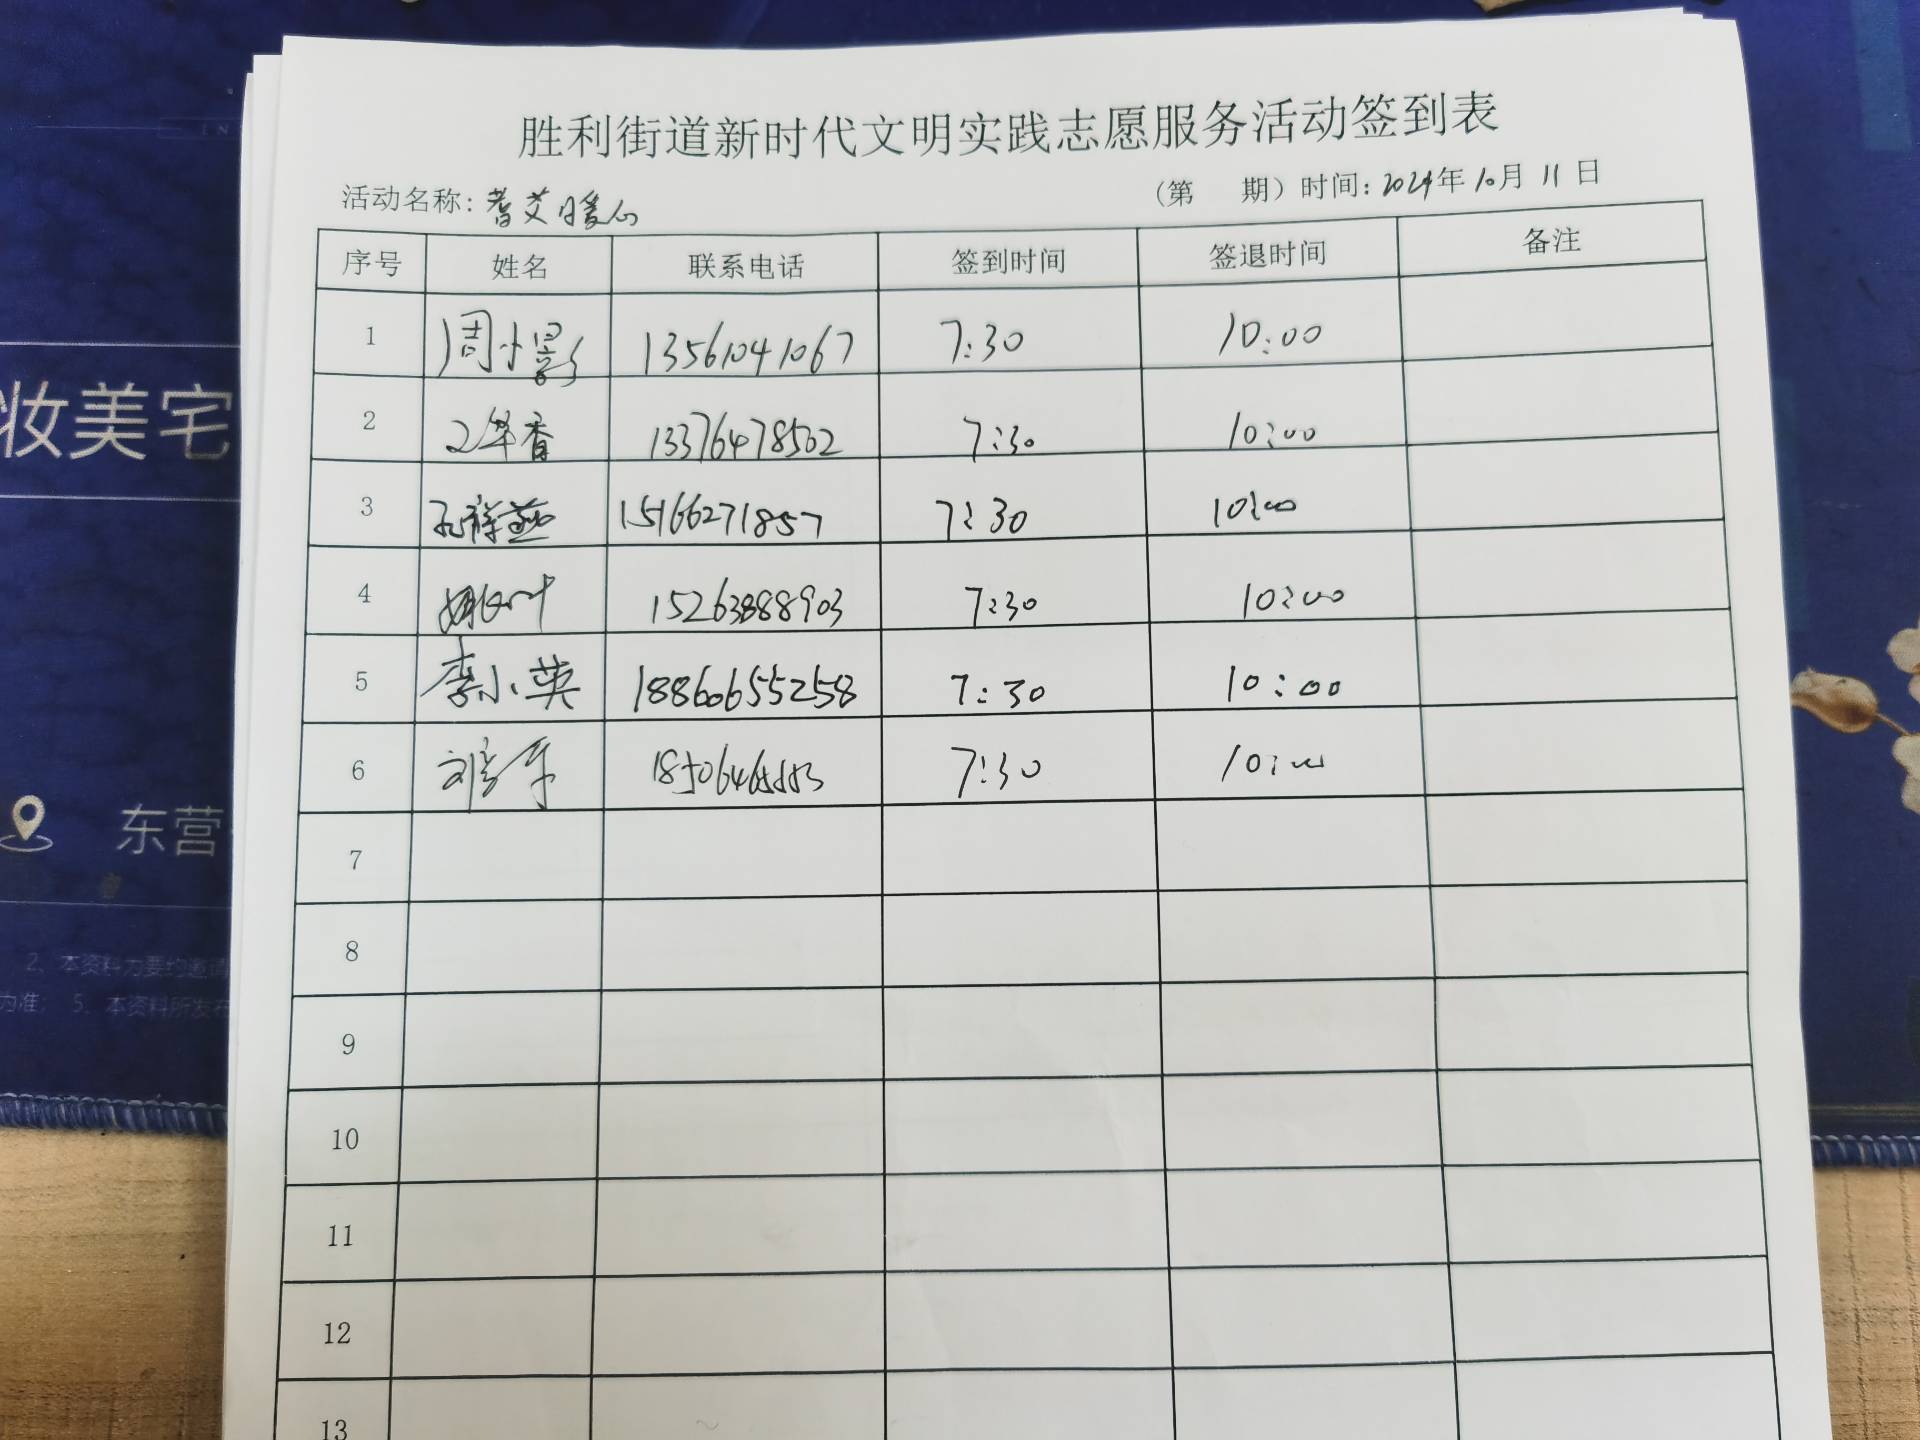 胜利街道新时代文明实践志愿服务活动签到表
活动名称: 耆艾暖心 (第 期) 时间: 2024年 10月 11日
序号 姓名 联系电话 签到时间 签退时间 备注
1 周小影 13561041067 7:30 10:00
2 华香 13376478502 7:30 10:00
3 孔祥燕 15166271857 7:30 10:00
4 15263888903 7:30 10:00
5 李小英 18860655258 7:30 10:00
6 7:30 10:00
7
8
9
10
11
12
13
妆美宅
东营
2、本资料为要约邀请
为准; 5、本资料所发布
IN